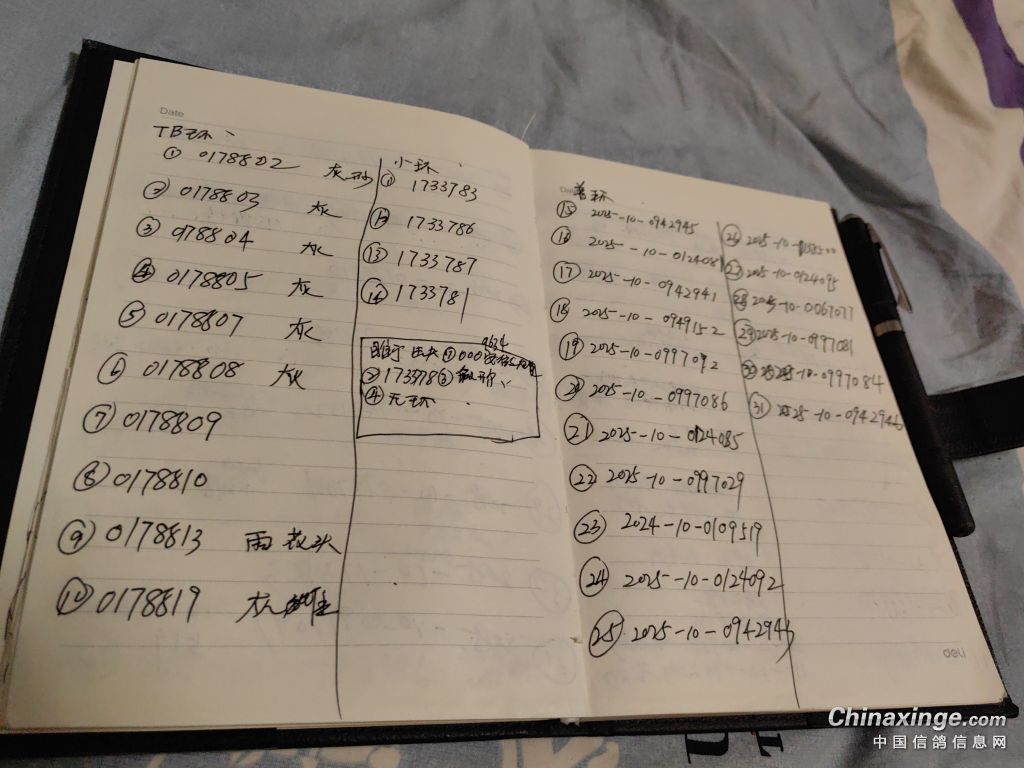 Date
TB环
① 0178802 灰砂
② 0178803 灰
③ 078804 灰
④ 0178805 灰
⑤ 0178807 灰
⑥ 0178808 灰
⑦ 0178809
⑧ 0178810
⑨ 0178813 雨花头
⑩ 0178819 灰
小环
⑪ 1733783
⑫ 1733786
⑬ 1733787
⑭ 1733781
9624
① 000
② 173378 ③
④ 无环
普环
⑮ 2025-10-0942945
⑯ 2025-10-0124081
⑰ 2025-10-0942941
⑱ 2025-10-0949152
⑲ 2025-10-0997092
⑳ 2025-10-0997086
㉑ 2025-10-0124085
㉒ 2025-10-0997029
㉓ 2024-10-0109519
㉔ 2025-10-0124092
㉕ 2025-10-0942943
㉖ 2025-10-
㉗ 2025-10-0124095
㉘ 2025-10-0067077
㉙ 2025-10-0997081
㉚ 2025-10-0997084
㉛ 2025-10-0942946
deli
Chinaxinge.com
中国信鸽信息网